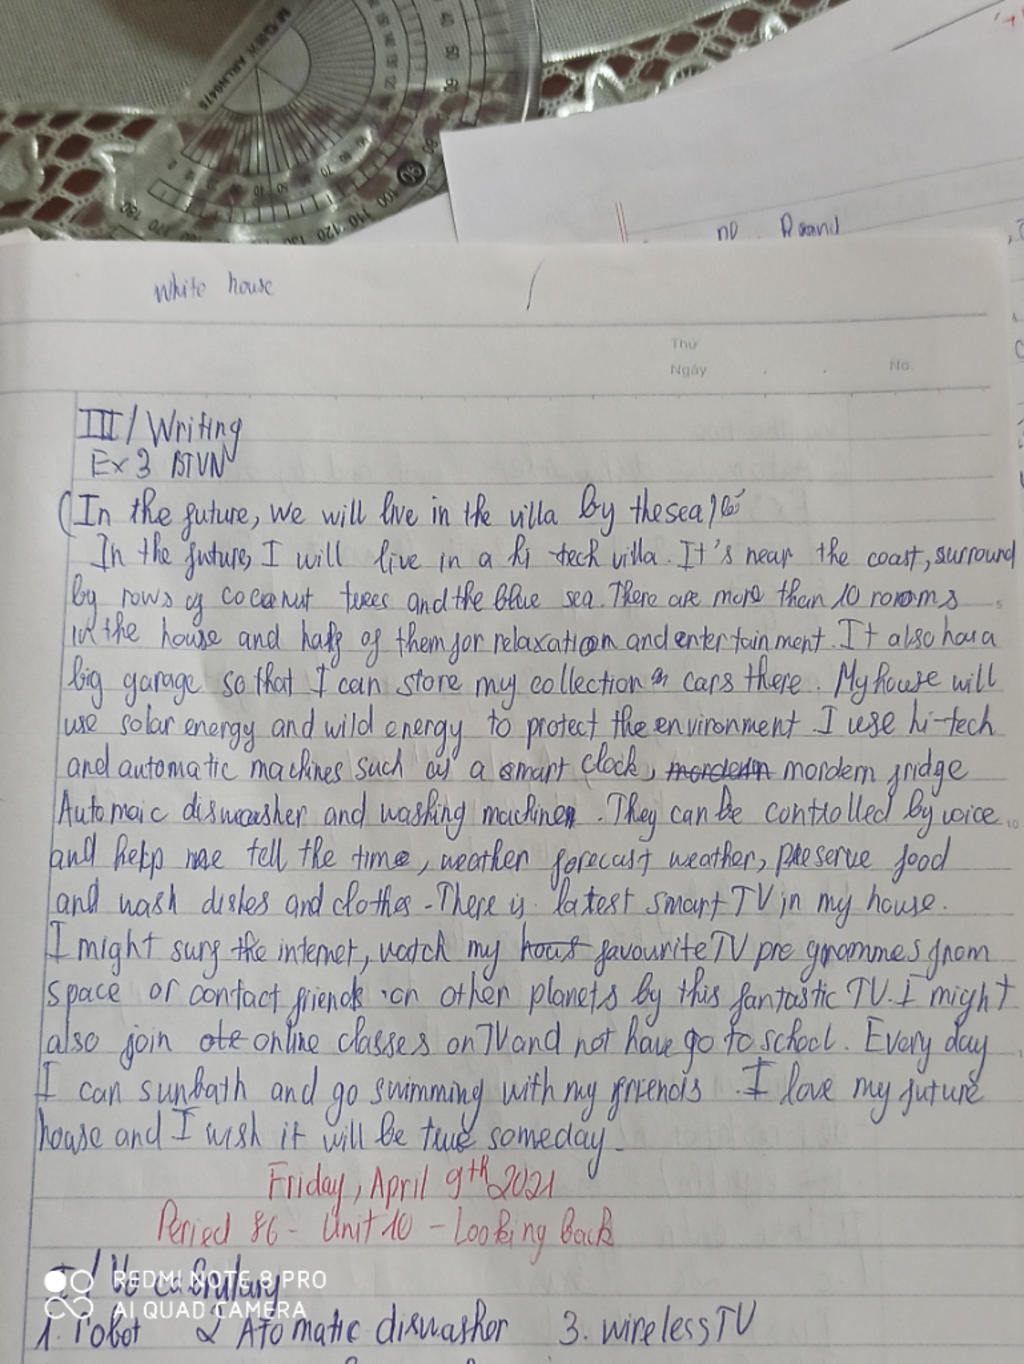 M QIEX ARLN0475
no Round
White house
Thứ
Ngày No.
III/ Writing
Ex 3 BTVN
(In the future, we will live in the villa by the sea)
In the future, I will live in a hi tech villa. It's near the coast, surround
by rows of coconut trees and the blue sea. There are more than 10 rooms
in the house and half of them for relaxation and entertainment. It also has a
big garage so that I can store my collection cars there. My house will
use solar energy and wild energy to protect the environment. I use hi-tech
and automatic machines such as a smart clock, mordern fridge
Automaic diswasher and washing machine. They can be controlled by voice
and help me tell the time, weather forecast weather, preserve food
and wash dishes and clothes. There is latest smart TV in my house.
I might surf the internet, watch my favourite TV programmes from
space or contact friends on other planets by this fantastic TV. I might
also join online classes on TV and not have go to school. Every day
I can sunbath and go swimming with my friends. I love my future
house and I wish it will be true someday.
Friday, April 9th 2021
Period 86 - Unit 10 - Looking back
I/ Vocabulary
REDMI NOTE 8 PRO
AI QUAD CAMERA
1. robot 2 Atomatic diswasher 3. wireless TV